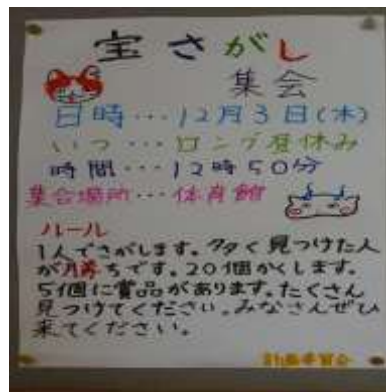 宝さがし
集会
日時…12月3日(木)
いつ…ロング昼休み
時間…12時50分
集合場所…体育館
ルール
1人でさがします。多く見つけた人
が勝ちです。20個かくします。
5個に賞品があります。たくさん
見つけてください。みなさんぜひ
来てください。